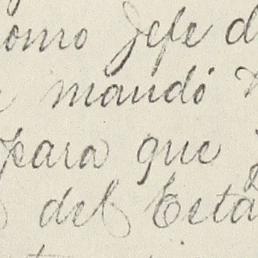 como Jefe d
mandó
para que
del Esta